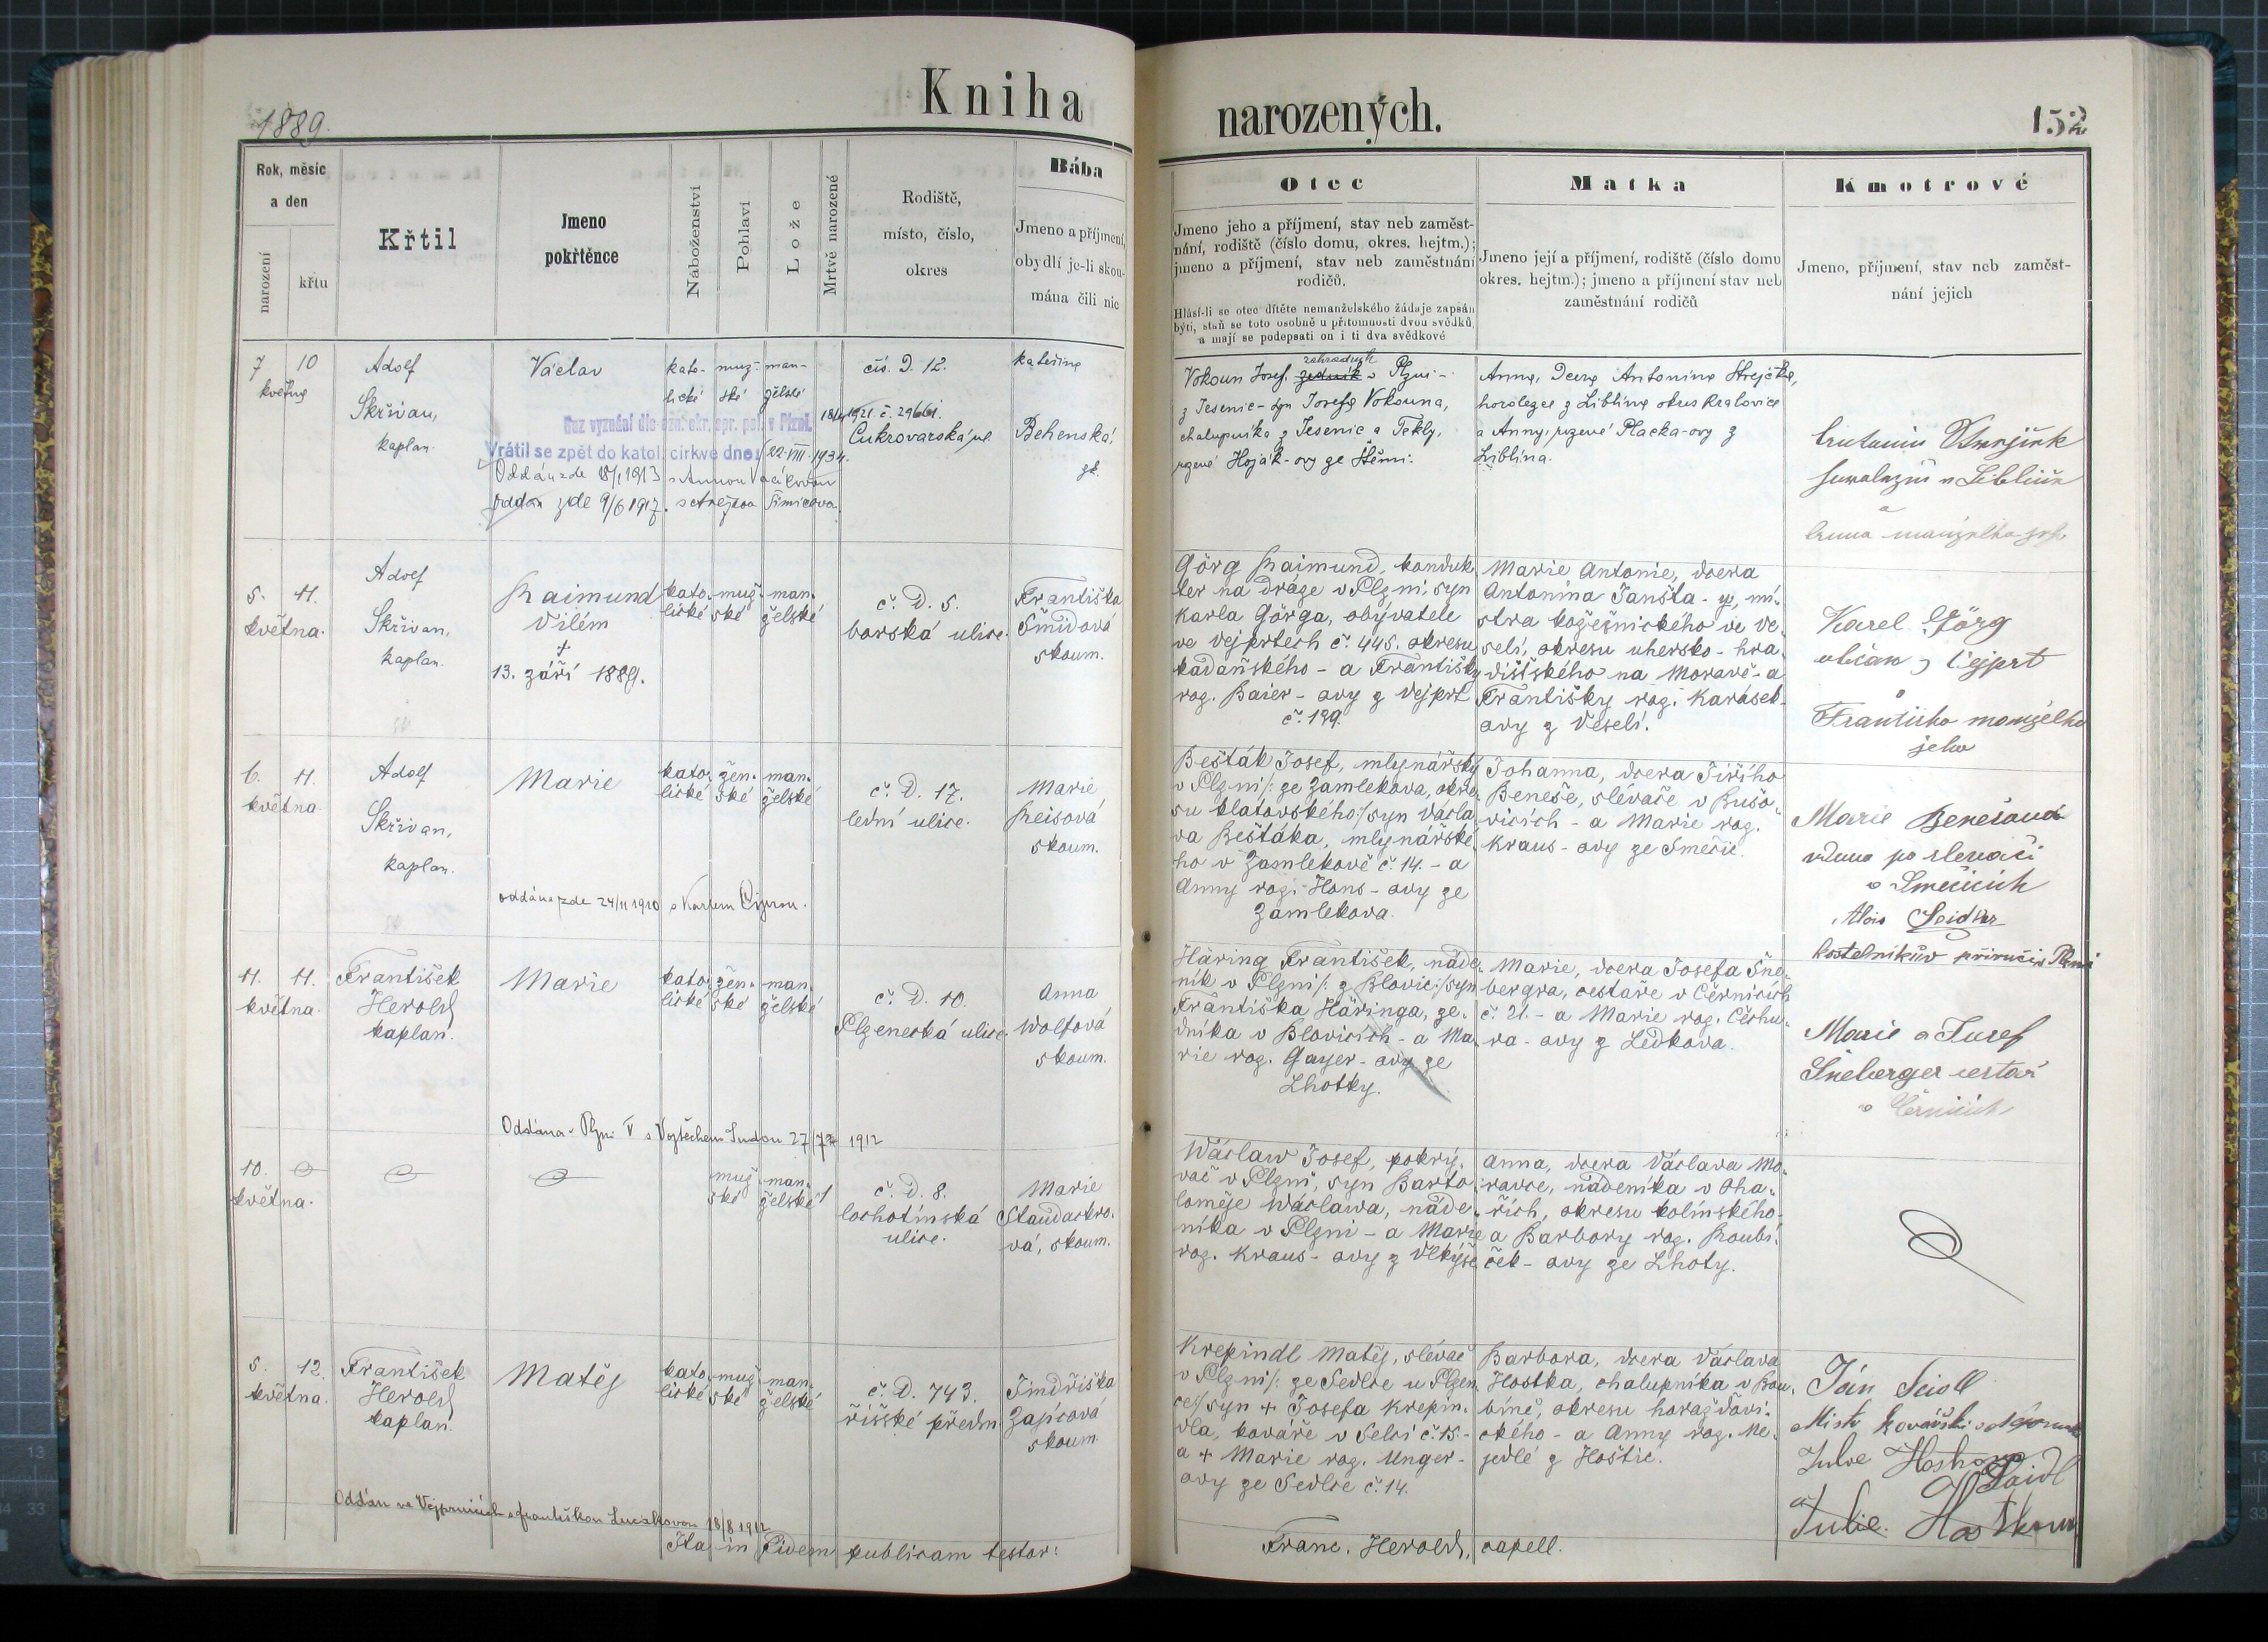 Kniha
narozených.
1889.
152
Rok, měsíc
a den
narození
křtu
Křtil
Jmeno
pokřtěnce
Náboženství
Pohlaví
Lože
Mrtvě narozené
Rodiště,
místo, číslo,
okres
Bába
Jmeno a příjmení,
obydlí je-li skou-
mána čili nic
Otec
Jmeno jeho a příjmení, stav neb zaměst-
nání, rodiště (číslo domu, okres. hejtm.);
jmeno a příjmení, stav neb zaměstnání
rodičů.
Hlásí-li se otec dítěte nemanželského žádaje zapsán
býti, staň se toto osobně u přítomnosti dvou svědků,
a mají se podepsati on i ti dva svědkové
Matka
Jmeno její a příjmení, rodiště (číslo domu
okres. hejtm.); jmeno a příjmení stav neb
zaměstnání rodičů
Kmotrové
Jmeno, příjmení, stav neb zaměst-
nání jejich
7 10
května
Adolf
Skřivan,
kaplan.
Václav
kato-
lické
muž-
ské
man-
želské
čís. D. 12.
Cukrovarská ul.
Kateřina
Behenská,
zk.
Bez vyznání dle ozn. okr. spr. pol. v Plzni.
18/4 1921. č. 29661.
Vrátil se zpět do katol. církve dne: 22. VIII. 1934.
Oddán zde 18/1 1913 s Annou
Oddán zde 9/6 1917.
zahradník
Vokoun Josef, zedník v Plzni -
z Jesenic - syn Josefa Vokouna,
chalupníka z Jesenic a Tekly,
rozené Hoják-ovy ze Štěni.
Anna, dcera Antonína Strejčka,
horolezce z Liblína okres Kralovice
a Anny, rozené Placka-ovy z
Liblína.
5. 11.
května.
Adolf
Skřivan,
kaplan.
Raimund
Vilém
†
13. září 1889.
kato.
lické
muž.
ské
man.
želské
č. D. 5.
borská ulice.
Františka
Šmidová
skoum.
Görg Raimund, konduk.
ter na dráze v Plzni, syn
Karla Görga, obývatele
ve Vejprtech č. 445. okresu
kadaňského - a Františky
roz. Baier - ovy z Vejprt
č. 199.
Marie Antonie, dcera
Antonína Janšta - y, mi-
stra kožešnického ve Ve-
selí, okresu uhersko - hra-
dišťského na Moravě - a
Františky roz. Karásek-
ovy z Veselí.
Karel Görg
občan z Vejprt
a
Františka manželka
jeho
6. 11.
května
Adolf
Skřivan,
kaplan.
Marie
kato.
lické
žen.
ské
man.
želské
č. D. 17.
lední ulice.
Marie
Reisová
skoum.
oddána zde 24/11 1910 s Karlem
Bešták Josef, mlynářský
v Plzni /: ze Zamlekova, okre.
su klatovského :/ syn Václa
va Beštáka, mlynářské.
ho v Zamlekově č. 14. - a
Anny roz. Hons - ovy ze
Zamlekova.
Johanna, dcera Jiřího
Beneše, slévače v Bušo-
vicích - a Marie roz.
Kraus - ovy ze Smečic.
Marie Benešová
vdova po slevači
v Smečicích
Alois Seidler
kostelníkův příručí v Plzni
11. 11.
května.
František
Herold
kaplan.
Marie
kato.
lické
žen.
ské
man.
želské
č. D. 10.
Plzenecká ulice.
Anna
Wolfová
skoum.
Oddána v Plzni V s Vojtěchem 27/7 1912
Häring František, náde.
ník v Plzni /: z Blovic :/ syn
Františka Häringa, ze.
dníka v Blovicích - a Ma.
rie roz. Gayer - ovy ze
Lhotky.
Marie, dcera Josefa Šne.
bergra, cestaře v Černicích
č. 21. - a Marie roz. Čechu.
ra - ovy z Ledkova.
Marie a Josef
Šneberger cestář
v Černicích
10.
května.
muž.
ské
man.
želské
1
č. D. 8.
lochotínská
ulice.
Marie
Staudackro.
vá, skoum.
Wáclaw Josef, pokrý.
vač v Plzni, syn Barto.
loměje Wáclawa, náde.
níka v Plzni - a Marie
roz. Kraus - ovy z Vlkýše
Anna, dcera Václava Mo.
ravce, nádeníka v Oha.
řích, okresu kolínského.
a Barbory roz. Roubí.
ček - ovy ze Lhoty.
5. 12.
května.
František
Herold
kaplan.
Matěj
kato.
lické
muž.
ské
man.
želské
č. D. 743.
říšské předm.
Jindřiška
Zajícová
skoum.
Oddán ve Vejprnicích s Františkou 18/8 1912
Krepindl Matěj, slévač
v Plzni /: ze Sedlce u Plzen.
ce :/ syn + Josefa Krepin.
dla, kováře v Selci č. 15. -
a + Marie roz. Unger -
ovy ze Sedlce č. 14.
Barbora, dcera Václava
Hostka, chalupníka v Bou.
bíně, okresu horažďovi.
ckého - a Anny roz. Ne.
jedlé z Hoštic.
Jan Seidl
Mistr kovářský
Seidl
Julie. Hostkova
Ita in fidem publicam testor:
Franc. Herold, capell.